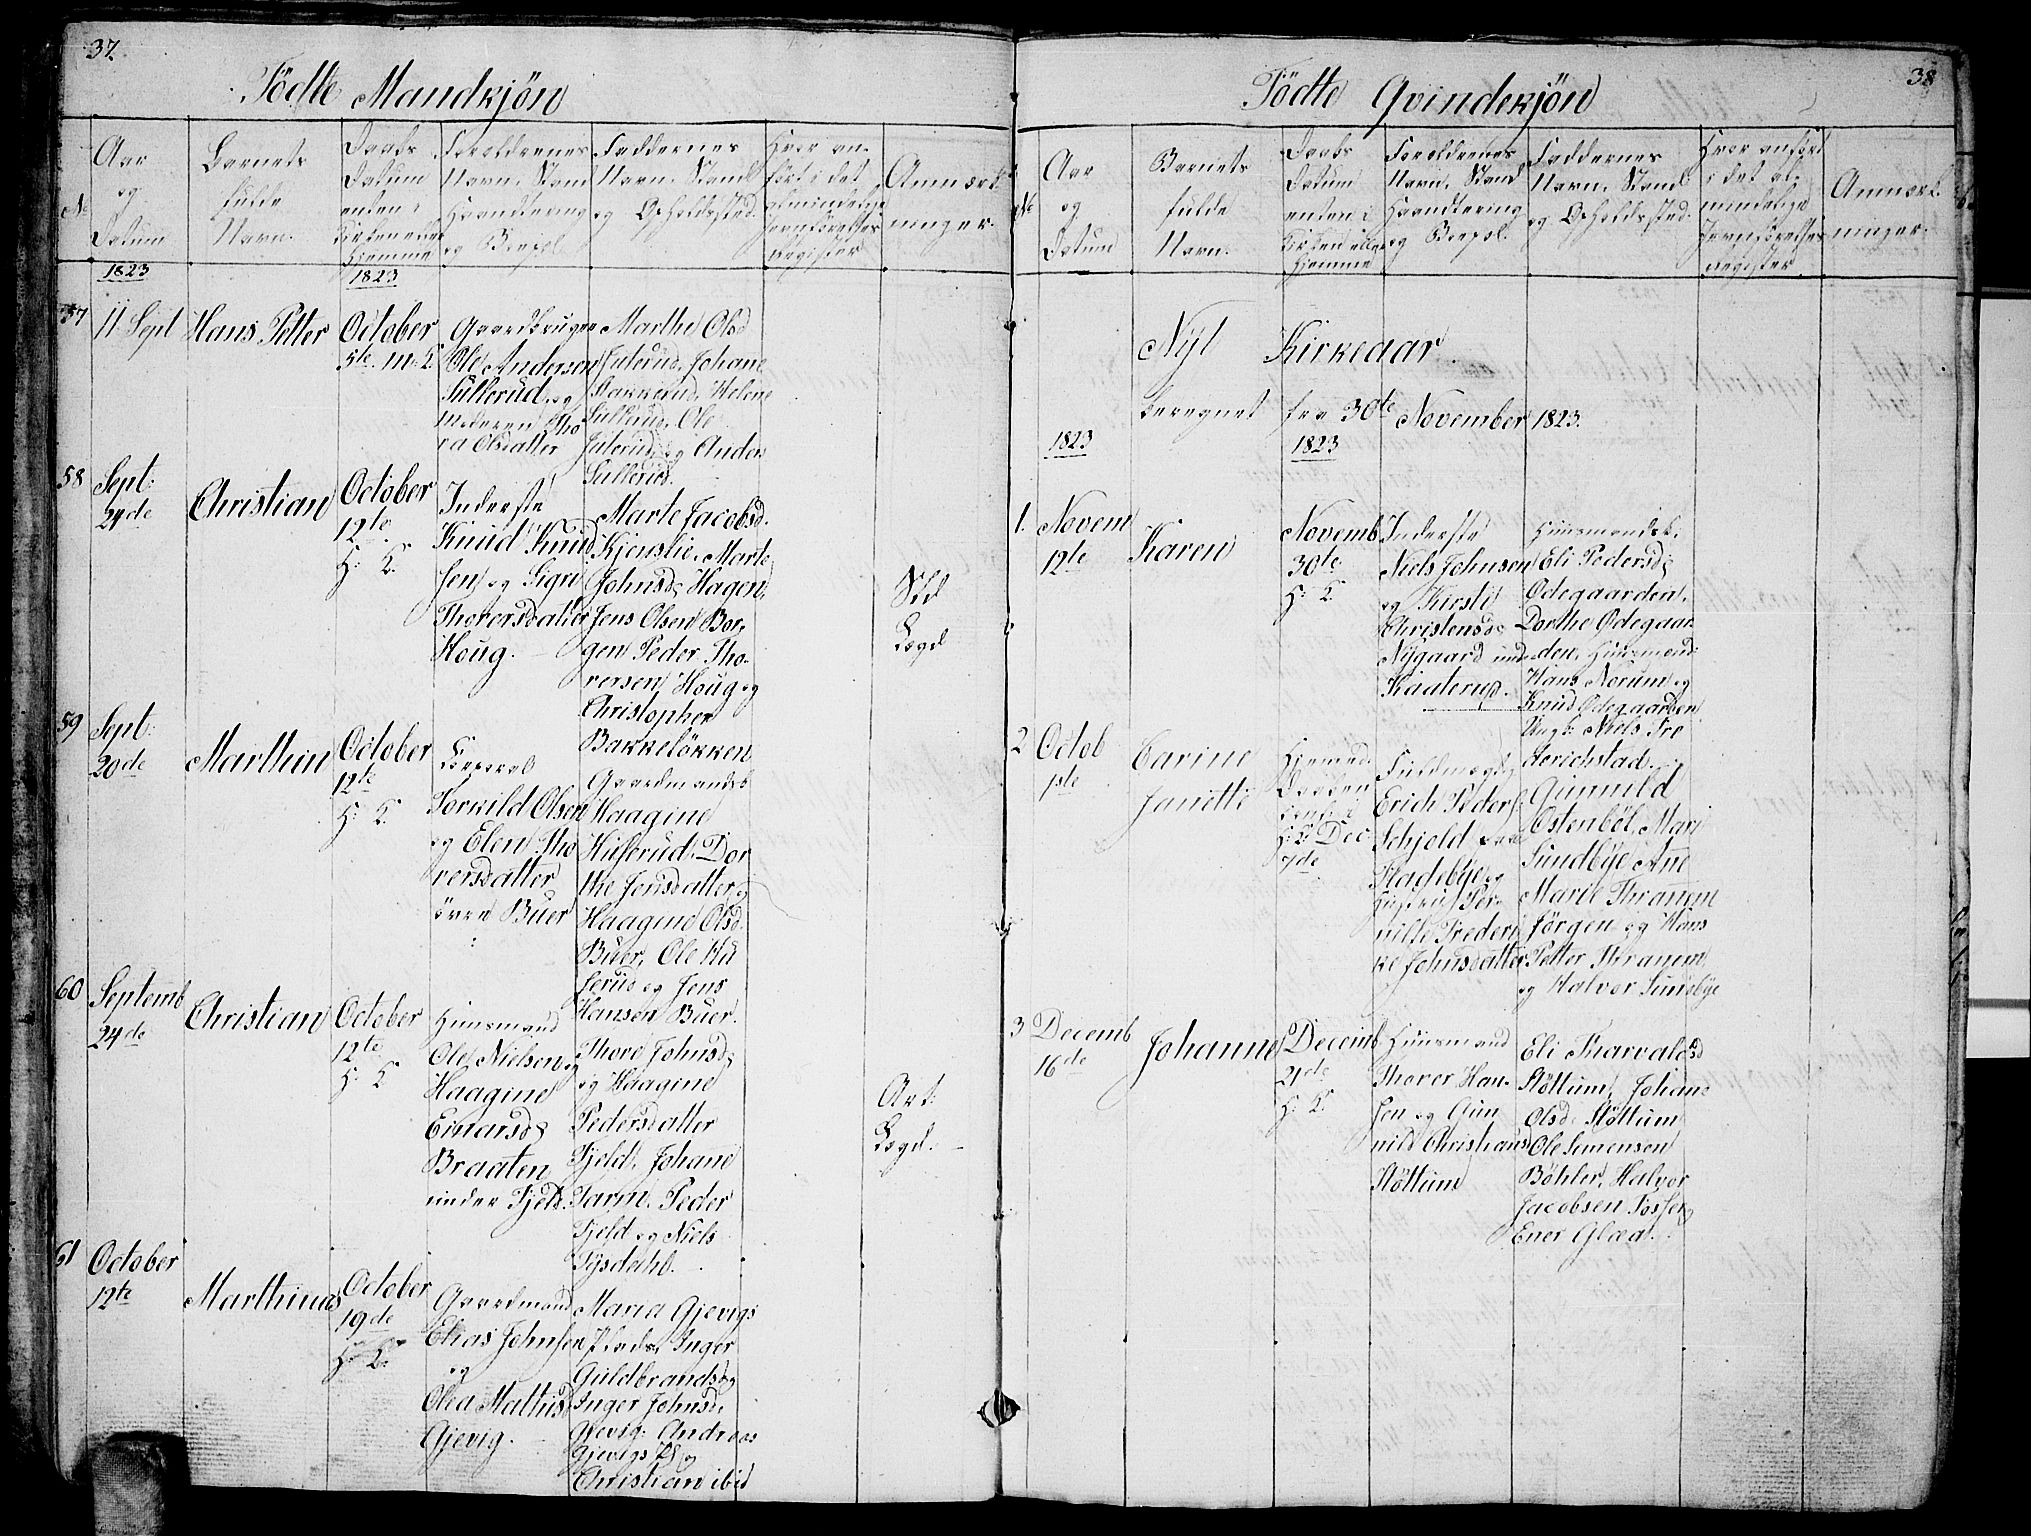 37.
Födte Mandkjön
No
Aar
og
Datum
Barnets
fulde
Navn.
Daabs
Datum
enten i
Kirken eller
Hjemme
Foreldrenes
Navn, Stand
Haandtering
og Boepæl
Faddernes
Navn, Stand
og Opholdssted.
Hvor an-
ført i det
almindelige
Jevnförelses
Register
Anmærk
ninger.
1823
1823
57
11 Sept
Hans Petter
October
5te M: K.
Gaardbruger
Ole Andersen
Sullerud, og
Moderen Tho
ra Olsdatter
Marthe Olsd
Julerud, Johane
Bakkerud, Helene
Sullerud, Ole
Julerud og Anders
Sullerud.
58
Sept:
24de
Christian
October
12te
H: K.
Inderste
Knud Knud
sen og Sigri
Thoversdatter
Houg.
Marte Jacobsd.
Kjenslie, Marte
Johnsd: Hagen,
Jens Olsen Bor,
gen Peder Tho-
versen Houg og
Christopher
Bakkelökken
Std
Lægd
59
Sept:
20de
Marthin
October
12te
H: K.
Corporal
Torkild Olsen
og Elen Tho
versdatter
övre Buer
Gaardmandsk
Haagine
Huserud, Dor
the Jensdatter,
Haagine Olsd.
Buer, Ole Hu
serud og Jens
Hansen Buer.
60
Septemb
24de
Christian
October
12te
H: K
Huusmand
Ole Nielsen og
Haagine
Einarsd:
Braaten
under Fjeld
Thore Johnsd:
og Haagine
Pedersdatter
Fjeld, Johane
Tarm, Peder
Fjeld og Niels
Art:
Lægd.
61
October
12te
Marthinus
October
19de
H: K.
Gaardmand
Elias Johnsen
og
Olea Mathisd
Gjevig.
Maria Gjevigs
Plads, Inger
Guldbrands
Inger Johnsd.
Gjevig. Andreas
Gjevigs
Christian ibid
38
Födte Qvindekjön
No
Aar
og
Datum
Barnets
fulde
Navn.
Daabs
Datum
enten i
Kirken eller
Hjemme
Foreldrenes
Navn, Stand
Haandtering
og Boepæl.
Faddernes
Navn, Stand
og Opholdssted.
Hvor anført
i det al-
mindelige
Jevnförelses
Register.
Anmærk
ninger.
Nyt Kirkeaar
beregnet fra 30te November 1823.
1823
1823
1.
Novem
12te
Karen
Novemb
30te
H: K.
Inderste
Niels Johnsen
og Kirsti
Christensd:
Nygaard und
Kaaterud.
Huusmandsk.
Eli Pedersd:
Ödegaarden,
Dorthe Ödegaar
den, Huusmænd:
Hans Norum og
Knud Ödegaarden
Ungk: Niels Fre
derichstad.
2
Octob
1ste
Carine
Janette
Hjemmed.
H: K: Dec
7de
Fuldmægtig
Erich Peders:
Schjold paa
Fladebye og
Hustru Per-
nille Frederi
ke Johnsdatter
Gunnild
Ostenböl, Mari
Sundbye, Ane
Marie Thranem
Jörgen og Hans
Petter Thranem,
og Halvor Sundbye
3
Decemb
16de
Johanne
Decemb
21de
H: K.
Huusmand
Thover Han-
sen og Gun
nild Christians
Stöttum
Eli Tharvaldsd
Stöttum, Johane
Olsd. Stöttum
Ole Semensen
Böhler, Halvor
Jacobsen Fosser,
Ener Glæa.